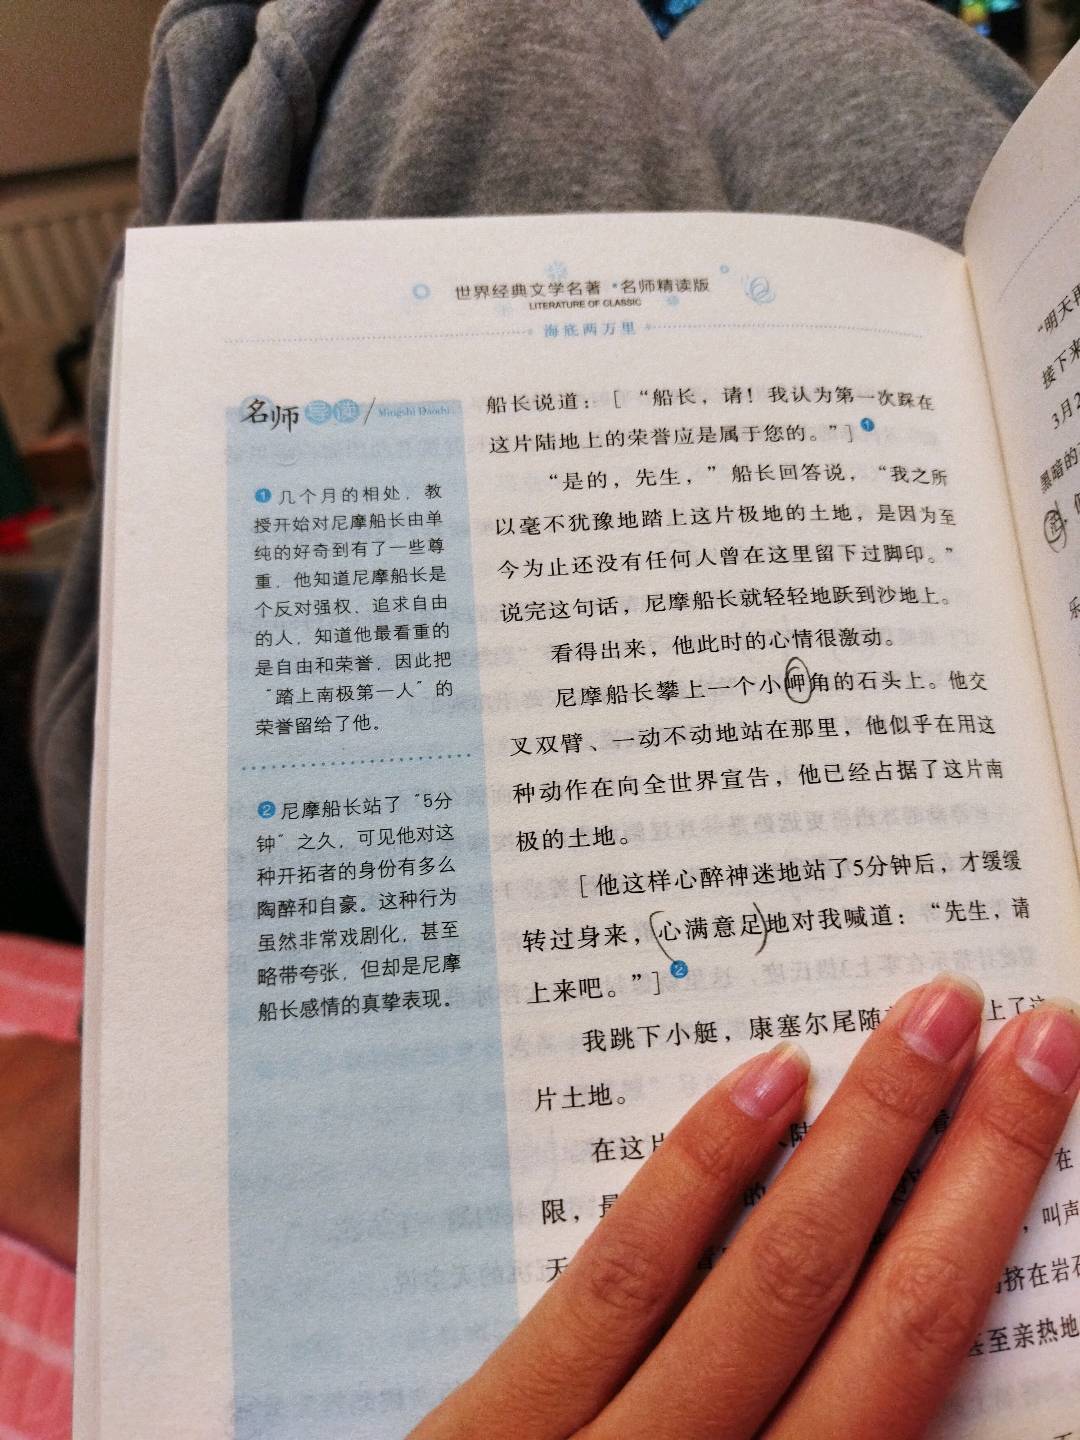 世界经典文学名著·名师精读版
LITERATURE OF CLASSIC
海底两万里
名师导读/Mingshi Daodu
1 几个月的相处，教
授开始对尼摩船长由单
纯的好奇到有了一些尊
重，他知道尼摩船长是
个反对强权、追求自由
的人，知道他最看重的
是自由和荣誉，因此把
“踏上南极第一人”的
荣誉留给了他。
2 尼摩船长站了“5分
钟”之久，可见他对这
种开拓者的身份有多么
陶醉和自豪。这种行为
虽然非常戏剧化，甚至
略带夸张，但却是尼摩
船长感情的真挚表现。
船长说道：[“船长，请！我认为第一次踩在
这片陆地上的荣誉应是属于您的。”]1
“是的，先生，”船长回答说，“我之所
以毫不犹豫地踏上这片极地的土地，是因为至
今为止还没有任何人曾在这里留下过脚印。”
说完这句话，尼摩船长就轻轻地跃到沙地上。
看得出来，他此时的心情很激动。
尼摩船长攀上一个小岬角的石头上。他交
叉双臂、一动不动地站在那里，他似乎在用这
种动作在向全世界宣告，他已经占据了这片南
极的土地。
[他这样心醉神迷地站了5分钟后，才缓缓
转过身来，心满意足地对我喊道：“先生，请
上来吧。”]2
我跳下小艇，康塞尔尾随 上了这
片土地。
在这片 陆
限， 的
天 在
，叫声
挤在岩石
甚至亲热地
“明天再
接下来
3月2
黑暗的